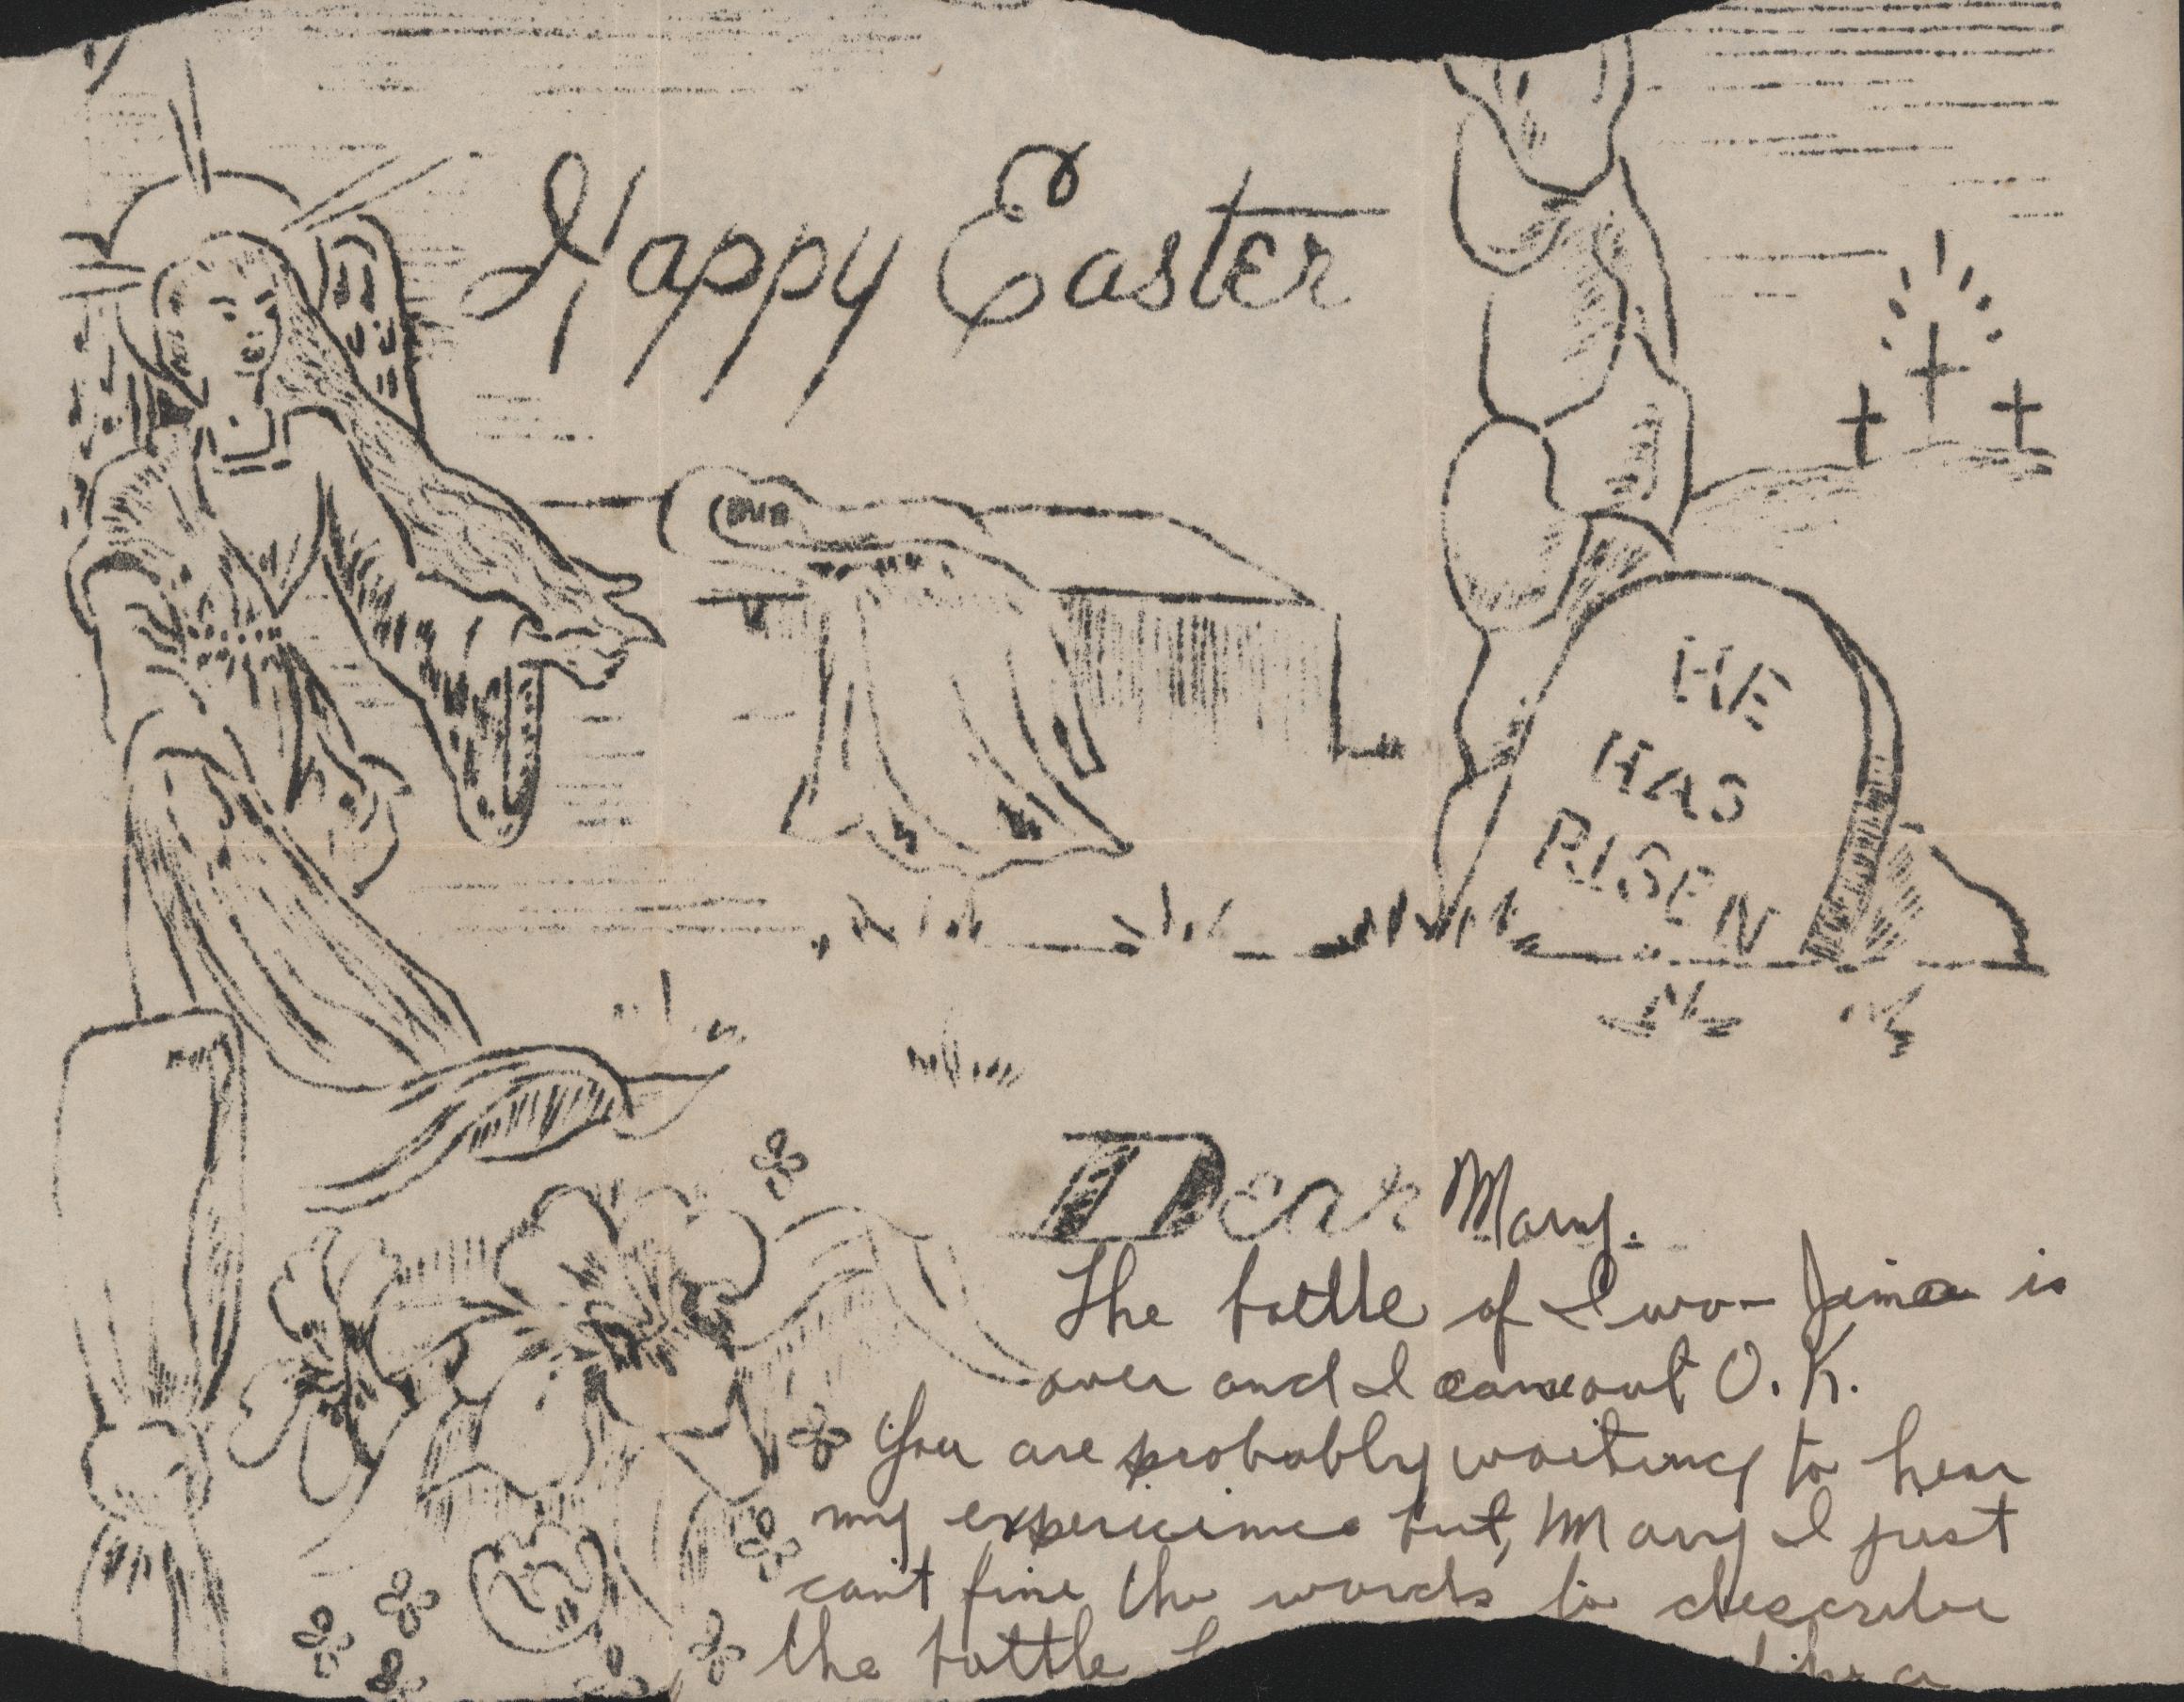 Happy Easter
HE
HAS
RISEN
Dear Mary.
The battle of Iwo-Jima is
over and I came out O.K.
You are probably waiting to hear
my expericince but, Mary I just
can't fine the words to describe
the battle